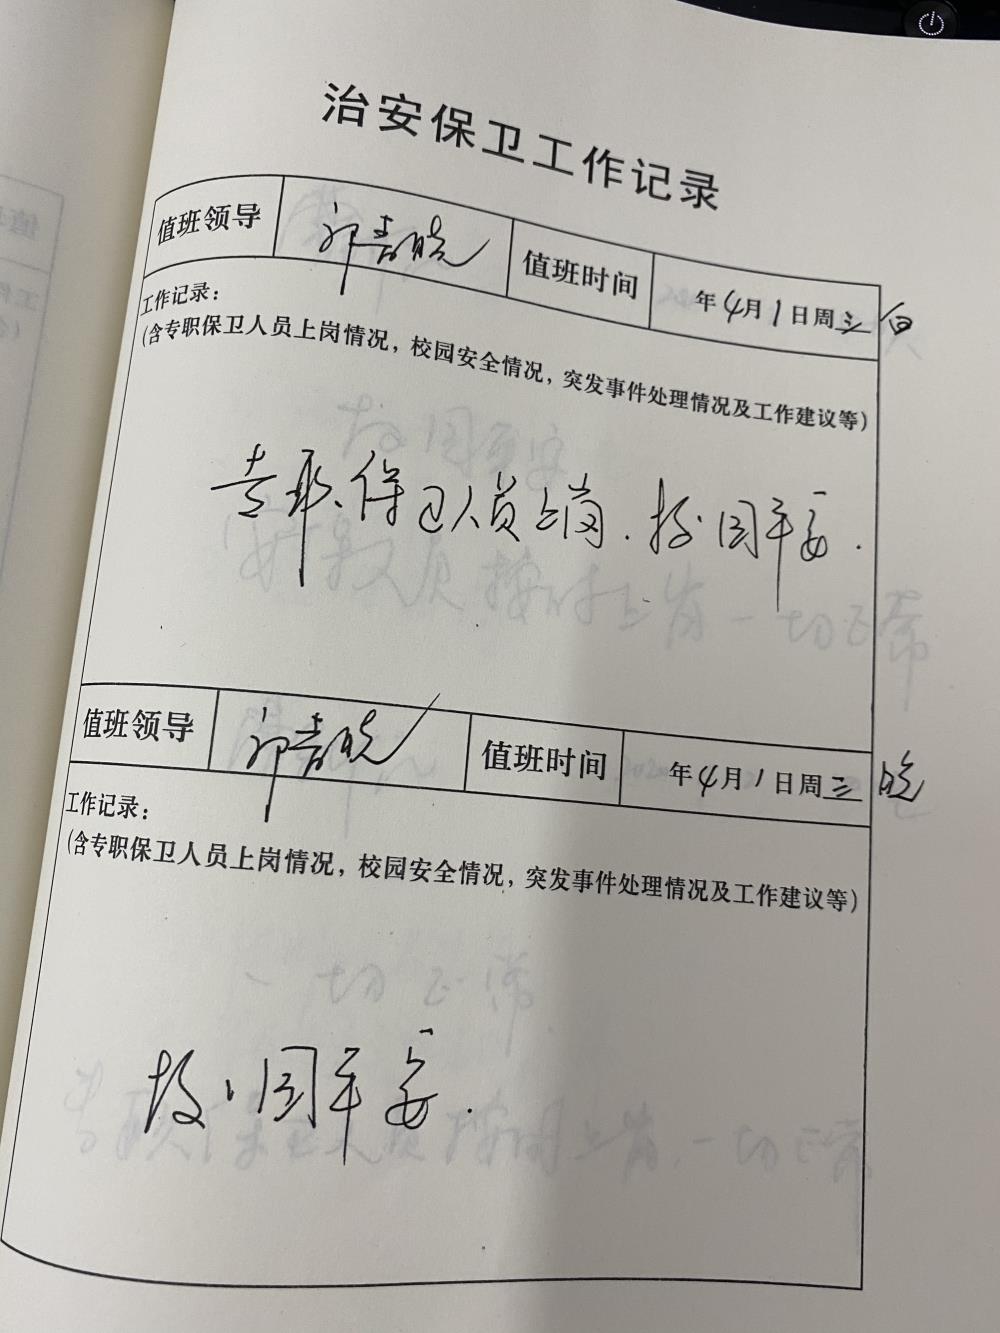 治安保卫工作记录
值班领导 值班时间 年4月1日周三 白
工作记录:
(含专职保卫人员上岗情况,校园安全情况,突发事件处理情况及工作建议等)
专职保卫人员上岗.校园平安.
值班领导 值班时间 年4月1日周三 晚
工作记录:
(含专职保卫人员上岗情况,校园安全情况,突发事件处理情况及工作建议等)
校园平安.